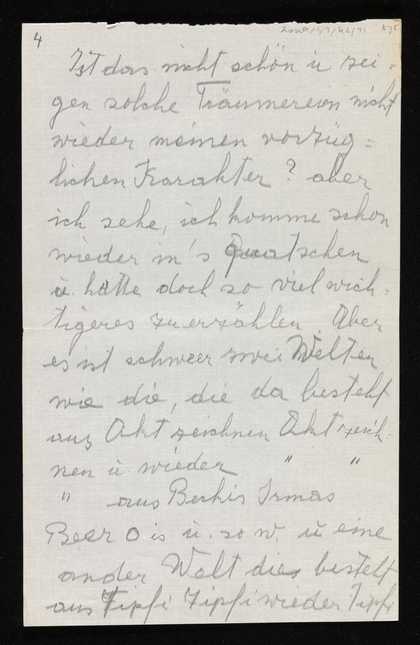 4
Ist das nicht schön u zei-
gen solche Träumereien nicht
wieder meinen vorzüg=
lichen Karakter? aber
ich sehe, ich komme schon
wieder in's Quatschen
u. hätte doch so viel wich-
tigeres zu erzählen. Aber
es ist schweer zwei Welten
wie die, die da besteht
aus Akt zeichnen Akt zeich-
nen u. wieder " "
" aus Irmas
u. so w. u eine
ander Welt die besteht
aus Tipfi Tipfi wieder Tipfi